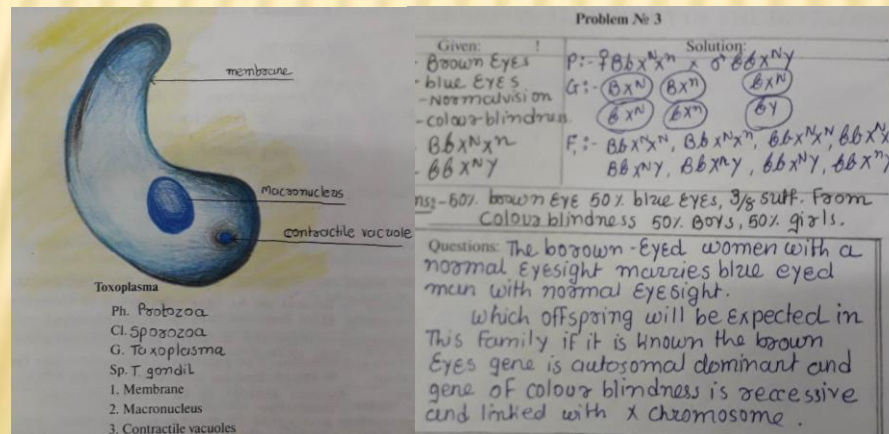 membrane
Macronucleus
contractile vacuole
Toxoplasma
Ph. Protozoa
Cl. Sporozoa
G. Toxoplasma
Sp. T gondil
1. Membrane
2. Macronucleus
3. Contractile vacuoles
Problem № 3
Given: !
- Brown Eyes
- blue Eyes
- Normal vision
- colour-blindness
. BbxᴺXⁿ
. bbxᴺY
Solution:
P:- ♀Bbxᴺxⁿ x ♂ bbxᴺY
G:- Bxᴺ Bxⁿ bxᴺ
bxᴺ bxⁿ bY
F₁:- BbxᴺXᴺ, BbxᴺXⁿ, bbxᴺxᴺ, bbxᴺx
BbxᴺY, BbxⁿY, bbxᴺY, bbxⁿY
ns:- 50% brown EyE 50% blue EyEs, 3/8 suff. From
Colour blindness 50% Boys, 50% girls.
Questions: The borown-Eyed women with a
normal Eyesight marries blue eyed
man with normal EyEsight.
which offspring will be Expected in
This Family if it is known the brown
EyEs gene is autosomal dominant and
gene of colour blindness is recessive
and linked with x chromosome.